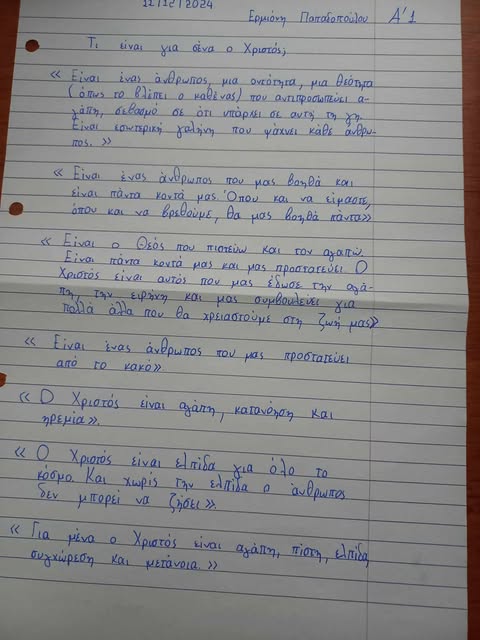 12/12/2024
Ερμιόνη Παπαδοπούλου Α'1
Τι είναι για σένα ο Χριστός;
« Είναι ένας άνθρωπος, μια οντότητα, μια θεότητα
(όπως το βλέπει ο καθένας) που αντιπροσωπεύει α-
γάπη, σεβασμό σε ότι υπάρχει σε αυτή τη γη.
Είναι εσωτερική γαλήνη που ψάχνει κάθε άνθρω-
πος. »
« Είναι ένας άνθρωπος που μας βοηθά και
είναι πάντα κοντά μας. Όπου και να είμαστε,
όπου και να βρεθούμε, θα μας βοηθά πάντα»
« Είναι ο Θεός που πιστεύω και τον αγαπώ.
Είναι πάντα κοντά μας και μας προστατεύει. Ο
Χριστός είναι αυτός που μας έδωσε την αγά-
πη, την ειρήνη και μας συμβουλεύει για
πολλά άλλα που θα χρειαστούμε στη ζωή μας»
« Είναι ένας άνθρωπος που μας προστατεύει
από το κακό»
« Ο Χριστός είναι αγάπη, κατανόηση και
ηρεμία».
« Ο Χριστός είναι ελπίδα για όλο το
κόσμο. Και χωρίς την ελπίδα ο άνθρωπος
δεν μπορεί να ζήσει».
« Για μένα ο Χριστός είναι αγάπη, πίστη, ελπίδα
συγχώρεση και μετάνοια. »